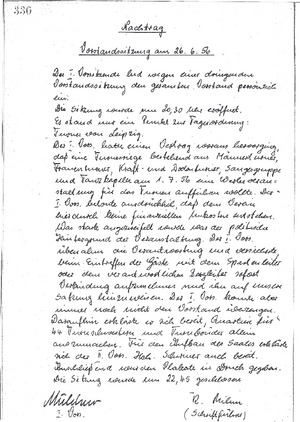 336
Nachtrag
Vorstandssitzung am 26.6.56
Der I. Vorsitzende lud wegen einer dringenden
Vorstandssitzung den gesamten Vorstand persönlich
ein.
Die Sitzung wurde um 20,30 Uhr eröffnet.
Es stand nur ein Punkt zur Tagesordnung:
Turner von Leipzig.
Der I. Vors. hatte einen Vertrag
daß eine Turnerriege bestehend aus Männerturner,
Frauenturner, Kraft- und Sangesgruppe
und Tanzkapelle am 1.7.56 eine
für das Turnen aufführen wollte. Der
I. Vors. betonte ausdrücklich, daß dem Verein
hierdurch keine finanziellen Unkosten entstehen.
Was stark angezweifelt wurde war der politische
Hintergrund der Veranstaltung. Der I. Vors.
übernahm die Verantwortung und versicherte
beim Eintreffen der Gäste mit dem Spartenleiter
oder dem verantwortlichen Begleiter sofort
Verbindung aufzunehmen und ihn auf unsere
Satzung hinzuweisen. Der I. Vors. konnte aber
immer noch nicht den Vorstand überzeugen.
Daraufhin erklärte er sich bereit, Quartiere für
44 Turnschwestern und Turnbrüder allein
auszumachen. Für den Aufbau des Saales erklärte
sich der II. Vors. auch bereit.
Anschließend wurden Plakate in Druck gegeben.
Die Sitzung wurde um 22,45 geschlossen
I. Vors.
(Schriftführer)